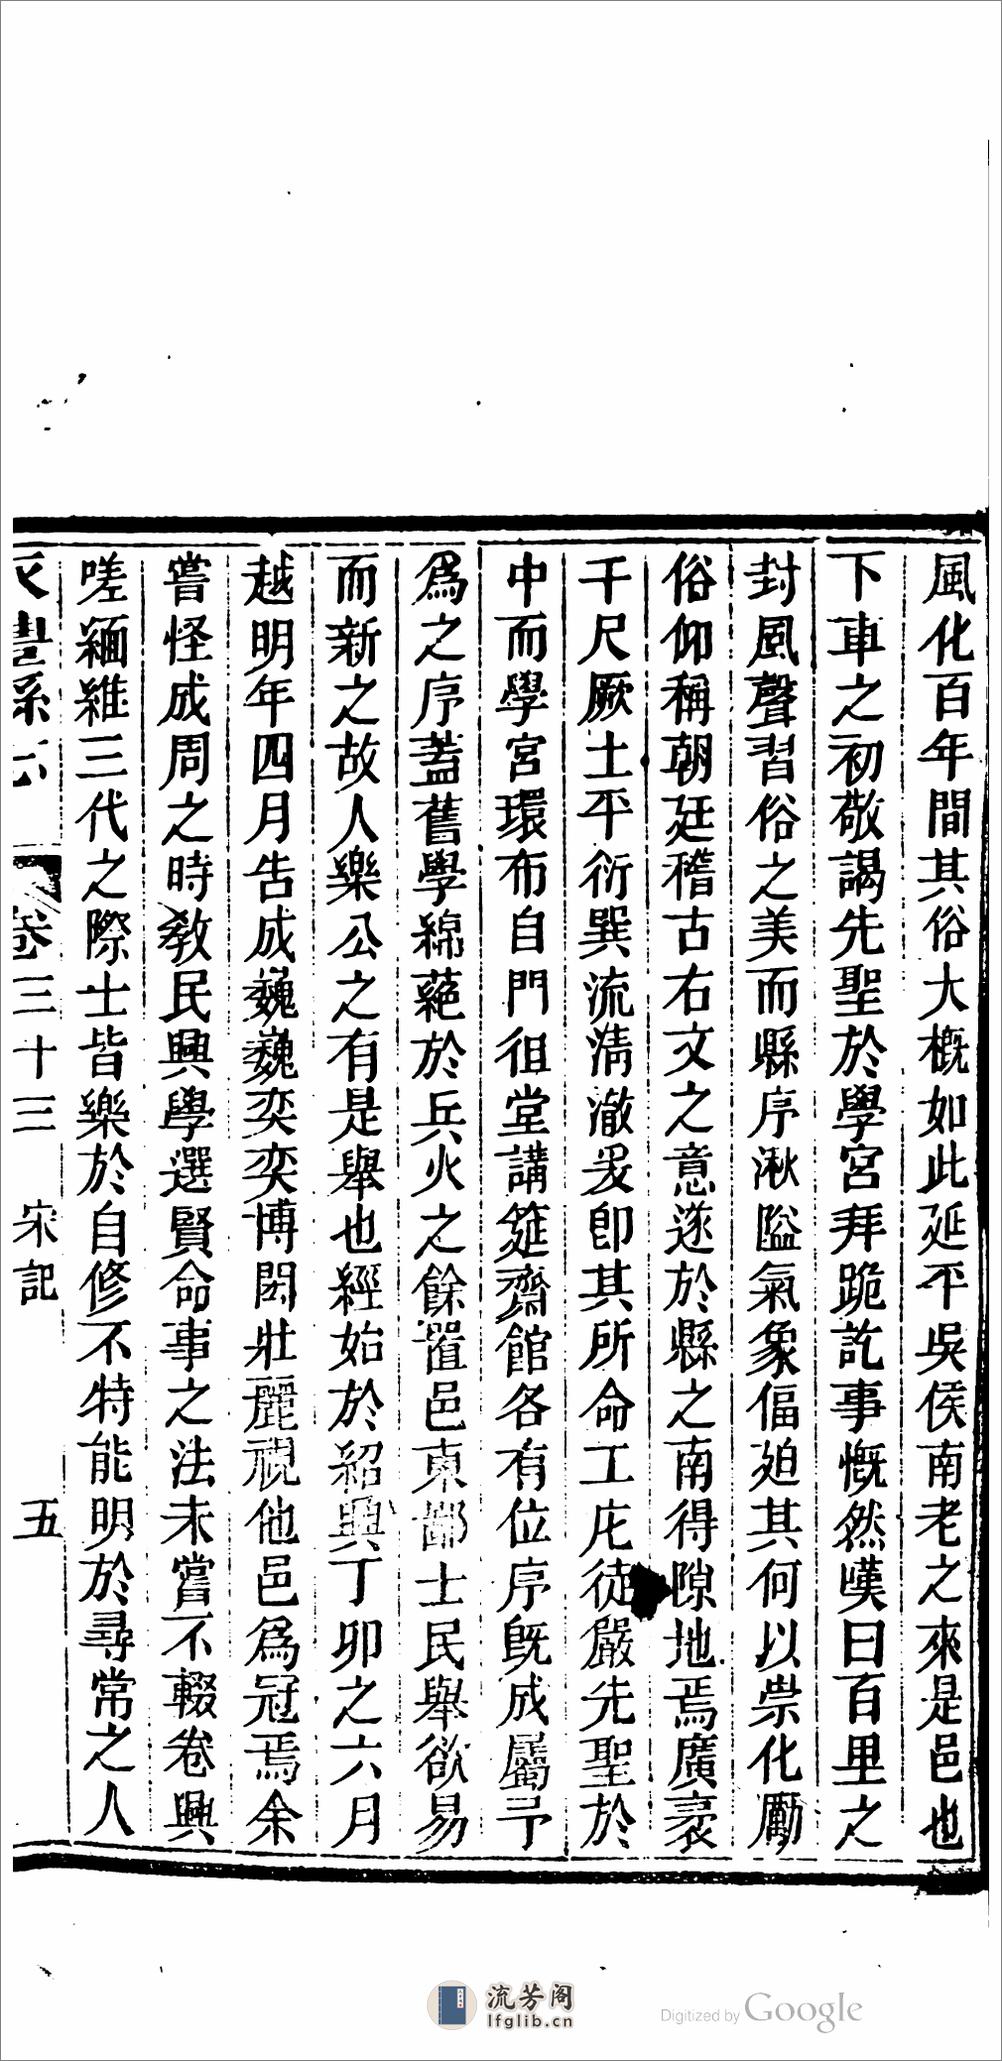 風化百年間其俗大概如此延平吳侯南老之來是邑也
下車之初敬謁先聖於學宮拜跪訖事慨然嘆曰百里之
封風聲習俗之美而縣序湫隘氣象偪廹其何以崇化勵
俗仰稱朝廷稽古右文之意遂於縣之南得隙地焉廣袤
千尺厥土平衍巽流淸澈爰卽其所命工庀徒嚴先聖於
中而學宮環布自門徂堂講筵齋館各有位序旣成屬予
爲之序蓋舊學綿蕝於兵火之餘置邑東鄙士民舉欲易
而新之故人樂公之有是舉也經始於紹興丁卯之六月
越明年四月告成巍巍奕奕博閎壯麗視他邑爲冠焉余
嘗怪成周之時教民興學選賢命事之法未嘗不輟卷興
嗟緬維三代之際士皆樂於自修不特能明於尋常之人
卷三十三 宋記 五
流芳阁
lfglib.cn
Digitized by Google